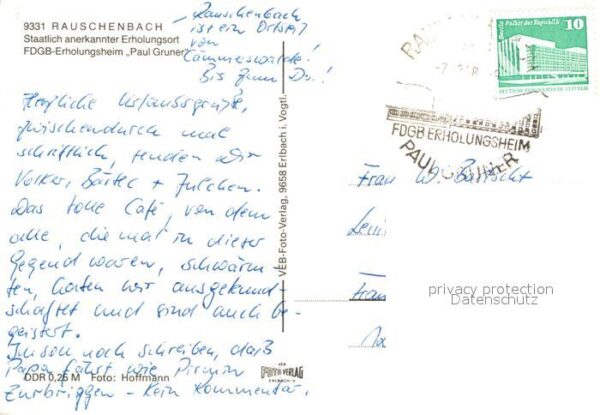 9331 RAUSCHENBACH
Staatlich anerkannter Erholungsort
FDGB-Erholungsheim „Paul Gruner"
Rauschenbach
ist ein Ortsteil
von
Cämmerswalde!
Bis zum Do.!
Herzliche Urlaubsgrüße,
zwischendurch mal
schriftlich, senden Dir
Volker, Bärbel + Julchen.
Das tolle Café, von dem
alle, die mal in dieser
Gegend waren, schwärm-
ten, haben wir ausgekund-
schaftet und sind auch be-
geistert.
noch schreiben, daß
Papa fährt wie Pirmin
Zurbriggen - Kein Kommentar.
DDR 0,25 M Foto: Hoffmann
VEB-Foto-Verlag, 9658 Erlbach i. Vogtl.
FOTO VERLAG
ERLBACH
Berlin, Palast der Republik
10
DEUTSCHE DEMOKRATISCHE REPUBLIK
FDGB ERHOLUNGSHEIM
PAUL GRUNER
Frau W.
privacy protection
Datenschutz